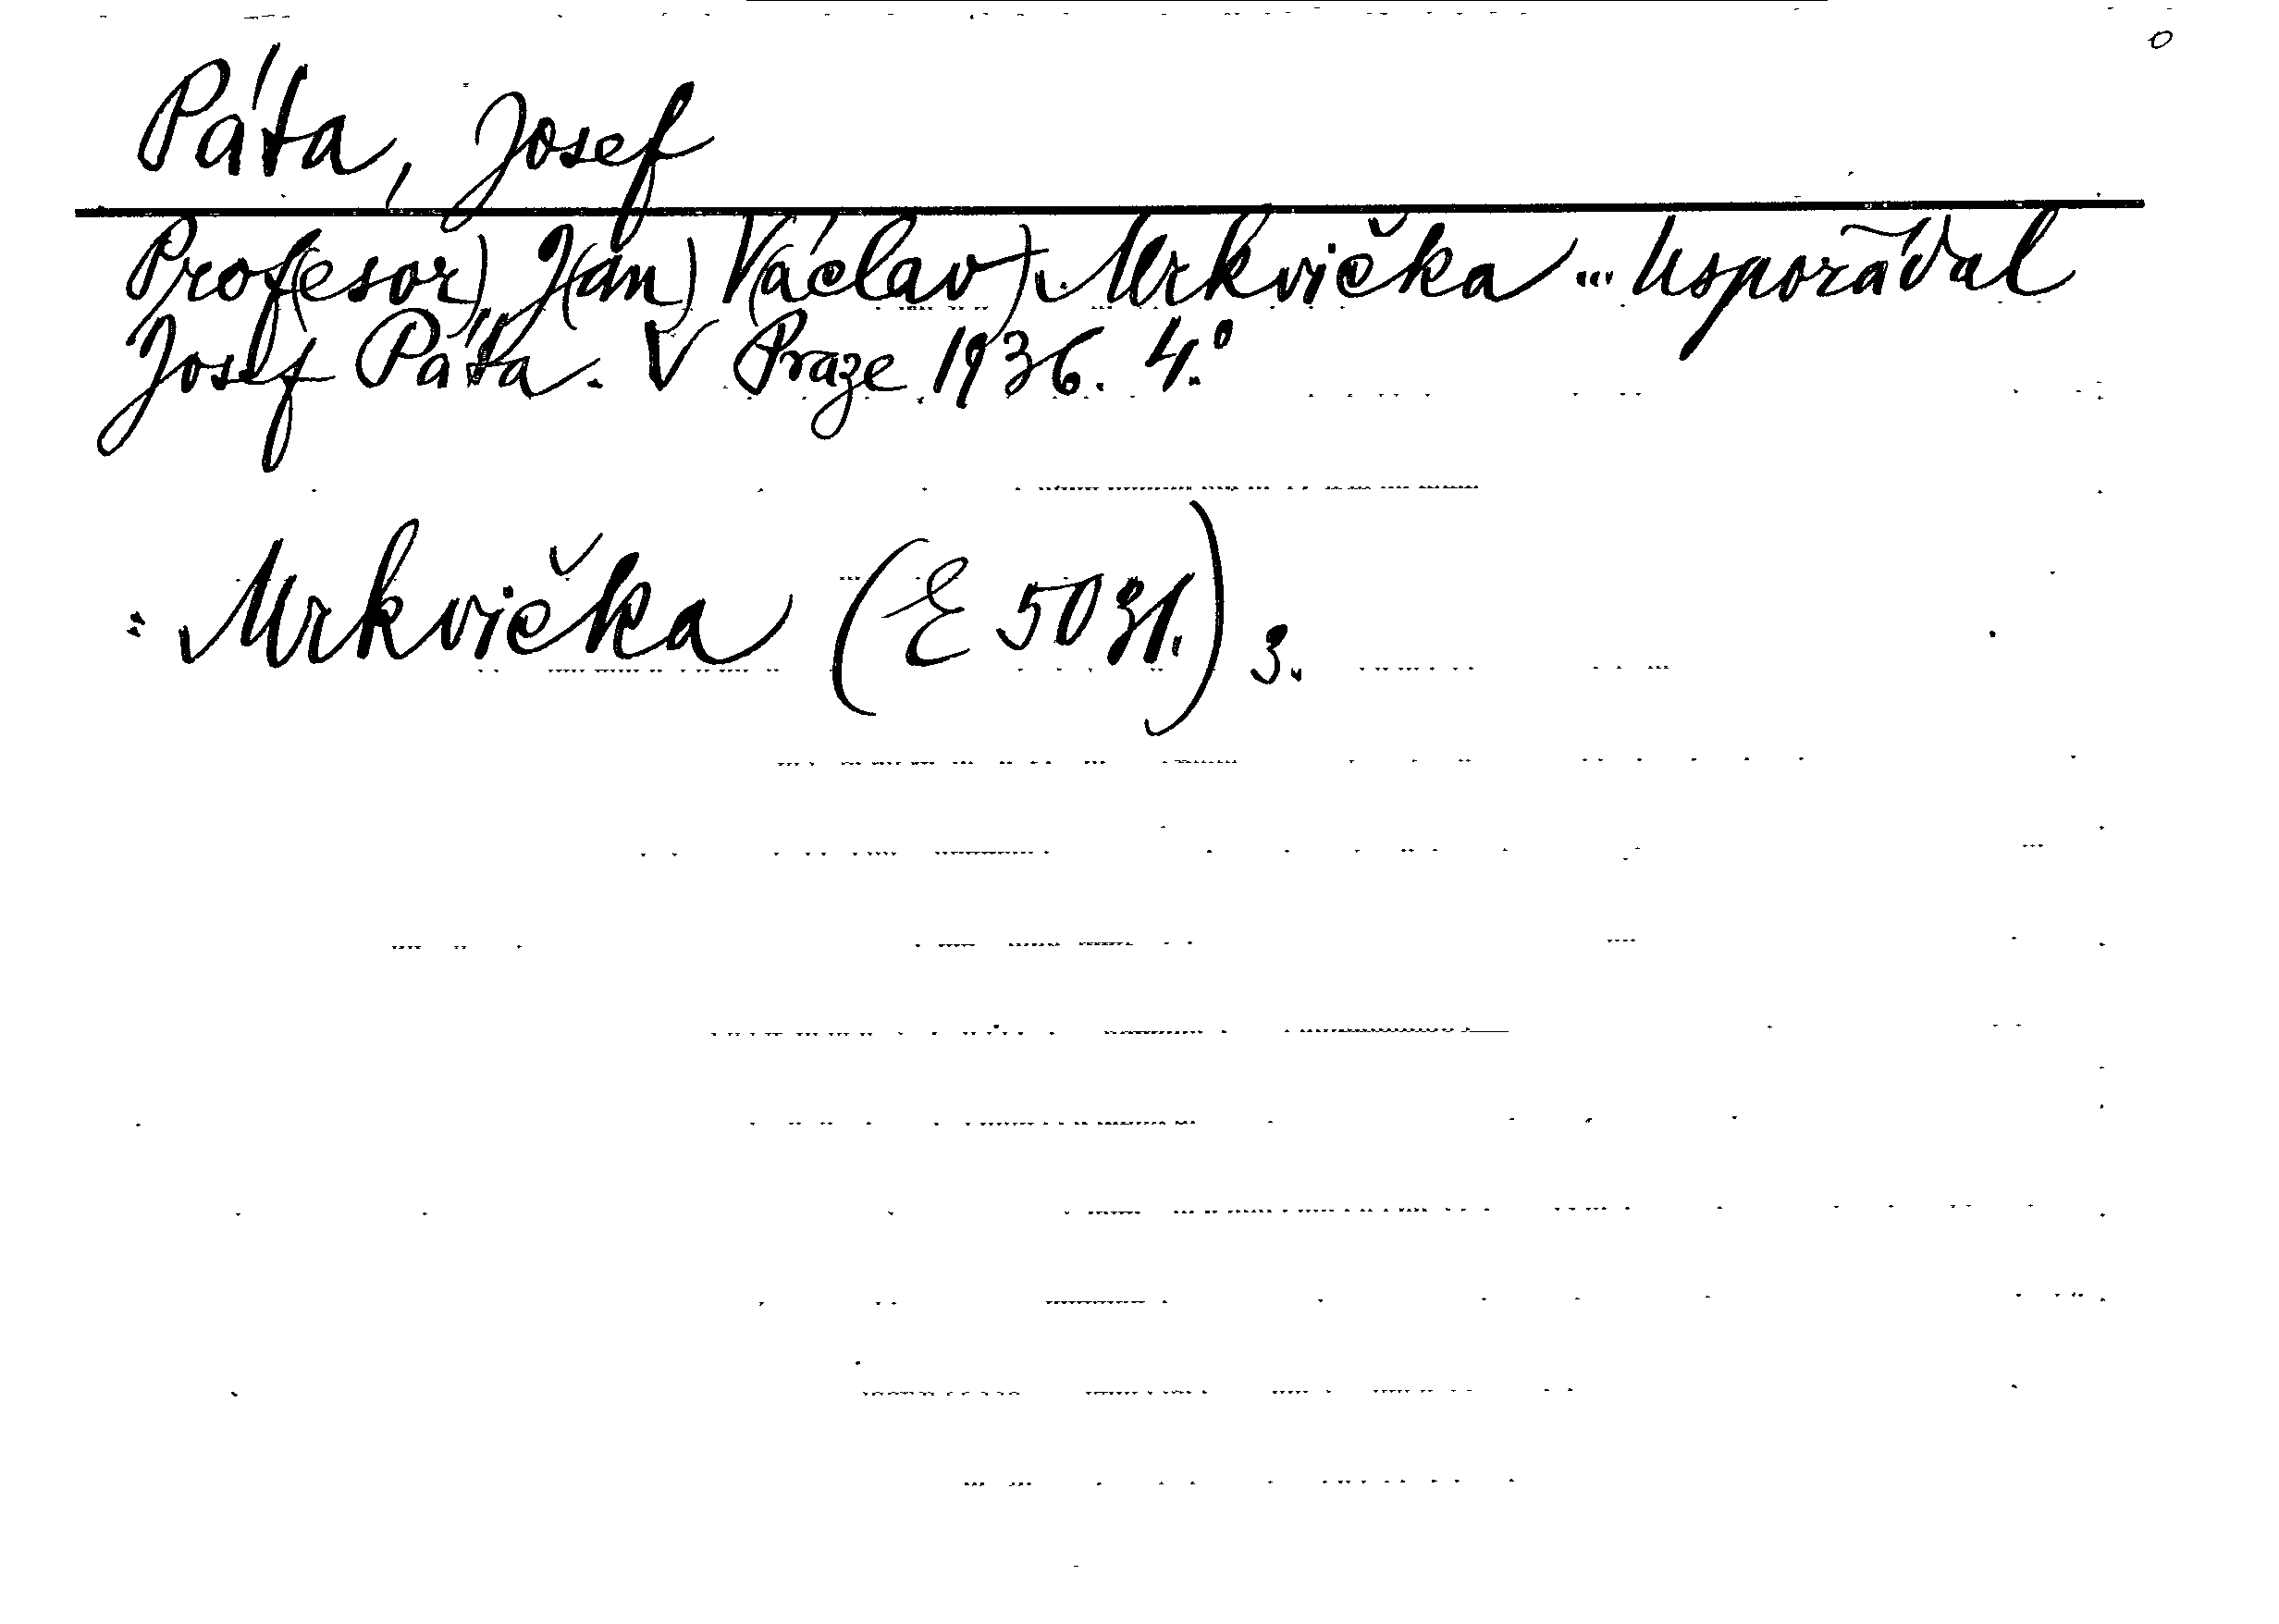 Páta, Josef
Prof(esor) J(an) V(áclav) Mrkvička ... Uspořádal
Josef Páta. V Praze 1936. 4.°
: Mrkvička (E 5031.) 3.